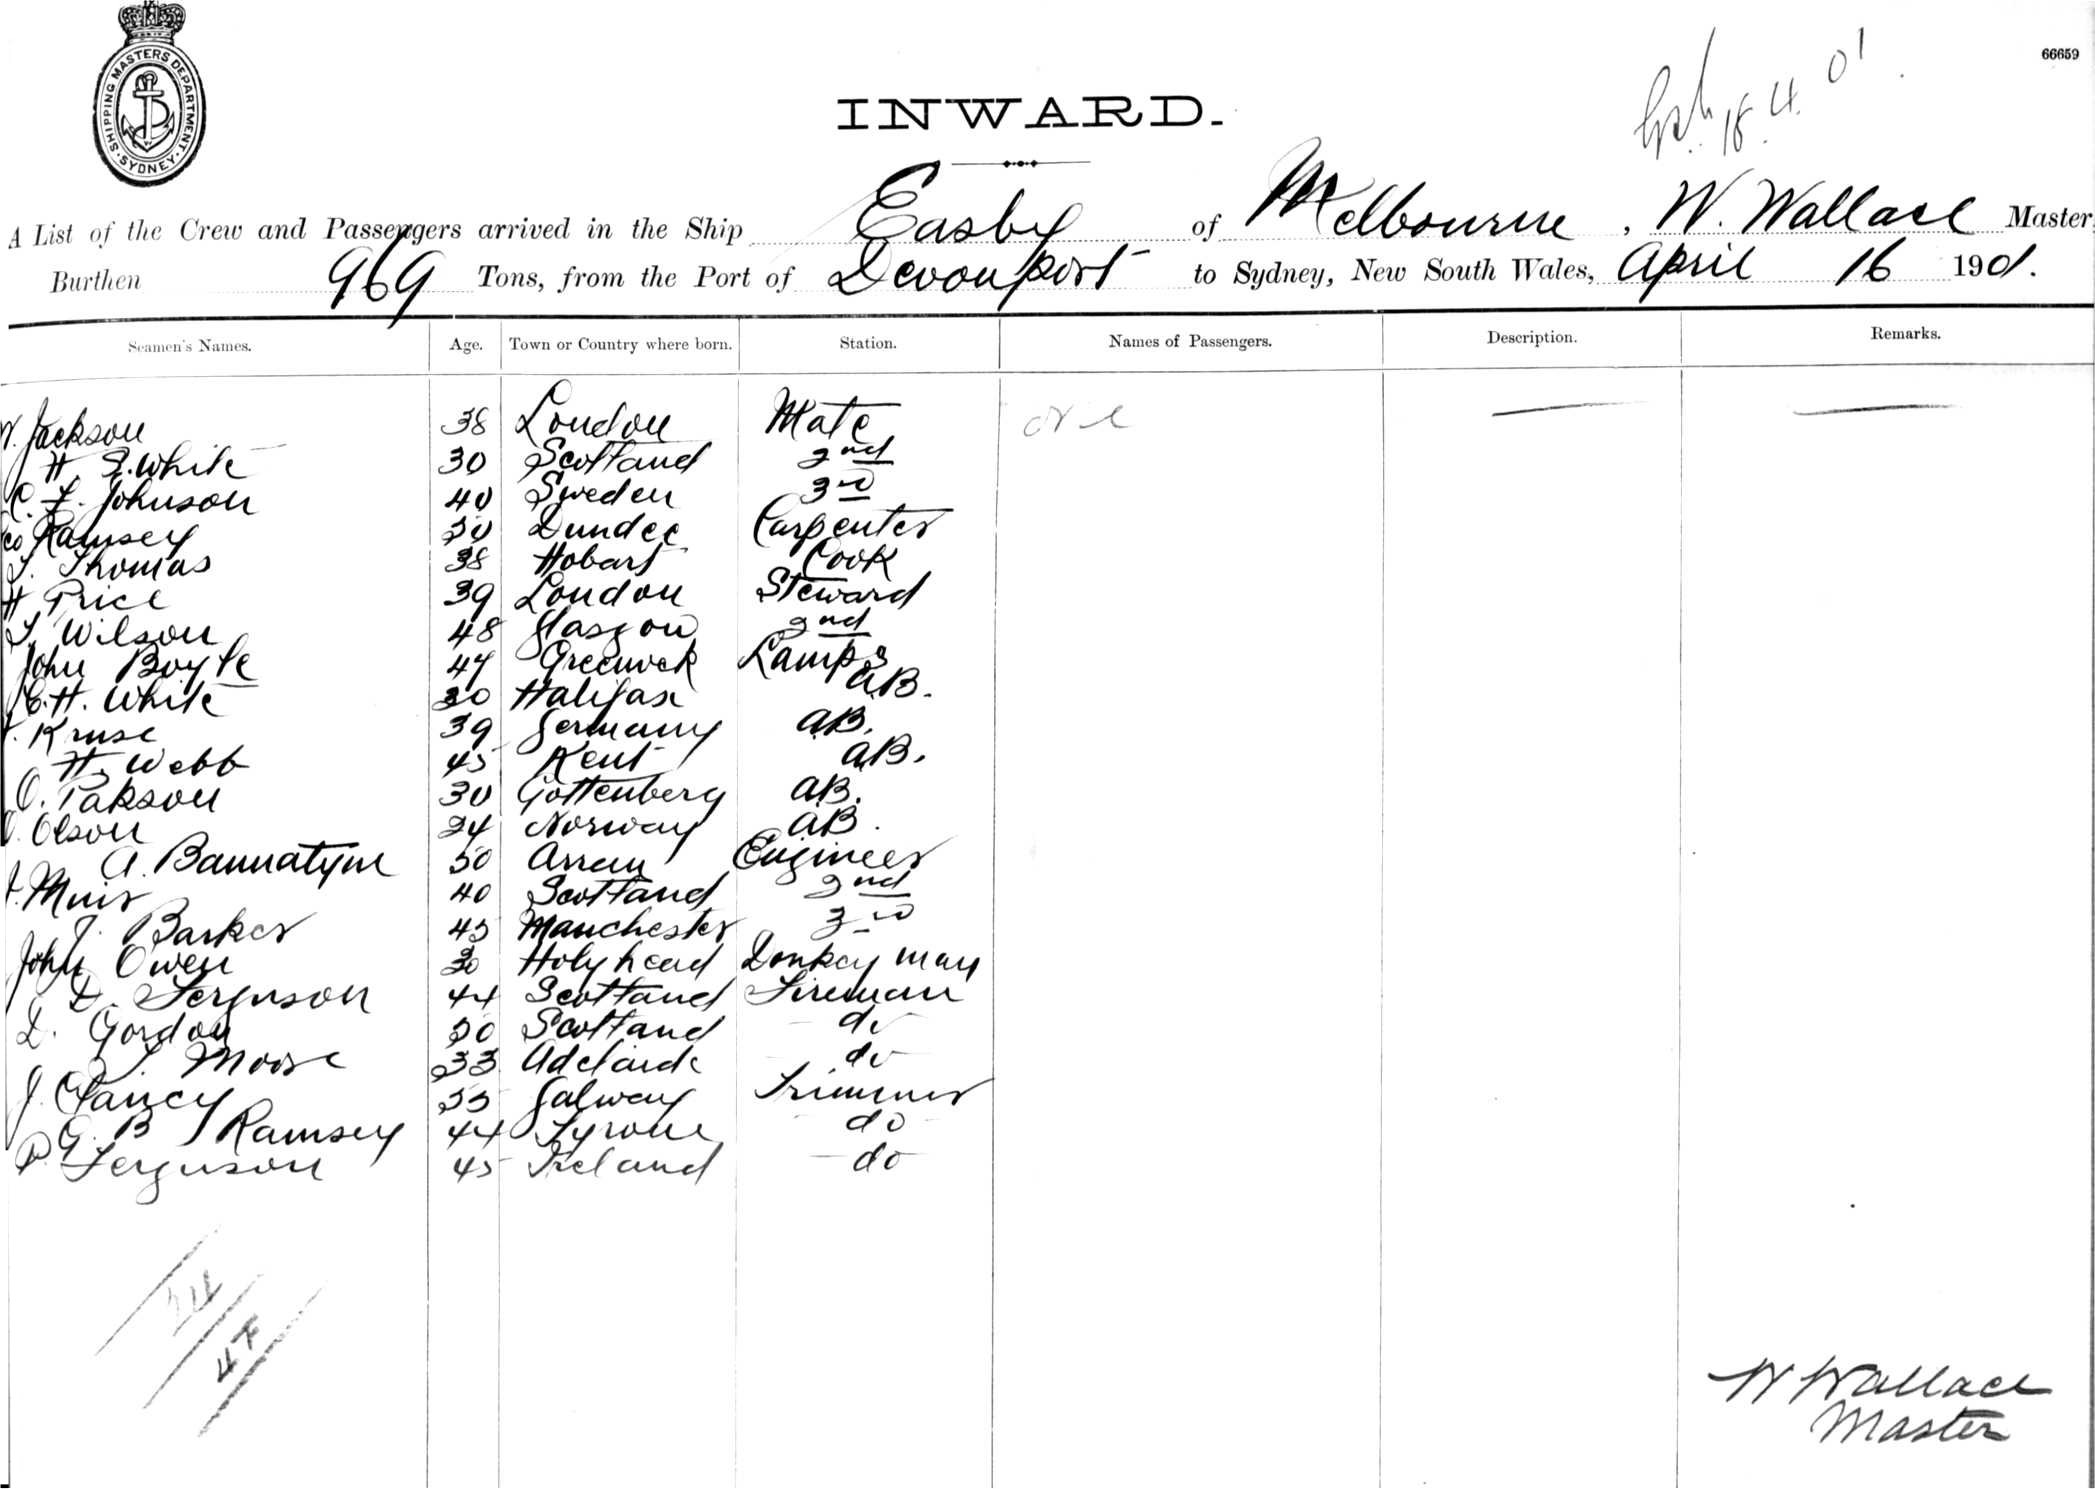 SHIPPING MASTERS DEPARTMENT. SYDNEY.
66659
18.4.01.
INWARD.
A List of the Crew and Passengers arrived in the Ship Easby of Melbourne, W. Wallace Master,
Burthen 969 Tons, from the Port of Devonport to Sydney, New South Wales, April 16 1901.
Seamen's Names. Age. Town or Country where born. Station. Names of Passengers. Description. Remarks.
W. Jackson 38 London Mate
H. E. White 30 Scotland 2nd
C. F. Johnson 40 Sweden 3rd
Geo Ramsey 30 Dundee Carpenter
T. Thomas 38 Hobart Cook
H Price 39 London Steward
T. Wilson 48 Glasgow 2nd
John Boyle 47 Greenock Lamps
C. H. White 30 Halifax AB.
Kruse 39 Germany AB.
H. Webb 45 Kent AB.
O. Pakson 30 Gottenberg AB.
O. Olson 24 Norway AB.
A. Bannatyne 50 Arran Engineer
J. Muir 40 Scotland 2nd
J. Barker 45 Manchester 3rd
John Owen 30 Holyhead Donkey man
D. Ferguson 44 Scotland Fireman
D. Gordon 50 Scotland do
T. Moore 33 Adelaide do
J. Clancy 35 Galway Trimmer
G. B Ramsey 44 Tyrone do
P. Ferguson 45 Ireland do
W Wallace
Master